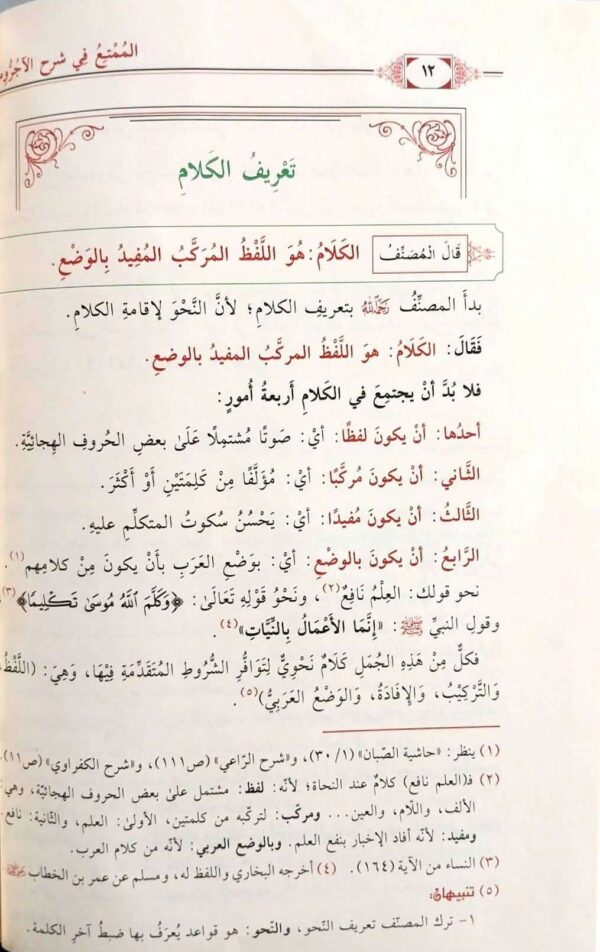 المُمْتِعُ فِي شَرْحِ
١٢
تَعْرِيفُ الكَلامِ
قَالَ المُصَنِّفُ الكَلَامُ: هُوَ اللَّفْظُ المُرَكَّبُ المُفِيدُ بِالوَضْعِ.
بدأَ المصنِّفُ رَحِمَهُ اللَّهُ بتعريفِ الكلامِ؛ لأنَّ النَّحْوَ لإقامةِ الكلامِ.
فَقَالَ: الكَلَامُ: هوَ اللَّفْظُ المركَّبُ المفيدُ بالوضعِ.
فلا بُدَّ أنْ يجتمِعَ في الكَلَامِ أَربعةُ أُمورٍ:
أحدُها: أنْ يكونَ لفظًا: أيْ: صَوتًا مُشتمِلًا عَلَىٰ بعضِ الحُروفِ الهِجائيَّةِ.
الثَّاني: أنْ يكونَ مُركَّبًا: أيْ: مُؤَلَّفًا مِنْ كَلِمَتَيْنِ أَوْ أَكْثَرَ.
الثَّالثُ: أنْ يكونَ مُفيدًا: أيْ: يَحْسُنُ سُكوتُ المتكلِّمِ عليهِ.
الرَّابعُ: أنْ يكونَ بالوضعِ: أيْ: بوَضْعِ العَرَبِ بأَنْ يكونَ مِنْ كلامِهم(١).
نحو قولك: العِلْمُ نَافِعٌ(٢)، ونَحْوُ قَوْلِهِ تَعَالَىٰ: ﴿وَكَلَّمَ ٱللَّهُ مُوسَىٰ تَكْلِيمًا﴾(٣)
وقول النبيِّ ﷺ: «إِنَّمَا الأَعْمَالُ بِالنِّيَّاتِ»(٤).
فكلٌّ مِنْ هَذِهِ الجُمَلِ كَلَامٌ نَحْوِيٌّ لِتَوَافُرِ الشُّرُوطِ المُتَقَدِّمَةِ فِيْهَا، وَهِيَ: (اللَّفْظُ
وَالتَّرْكِيْبُ، وَالإِفَادَةُ، وَالوَضْعُ العَرَبِيُّ)(٥).
(١) ينظر: «حاشية الصّبان» (٣٠/١)، و«شرح الرّاعي» (ص١١١)، و«شرح الكفراوي» (ص١١).
(٢) فـ(العلم نافع) كلامٌ عند النحاة؛ لأنّه: لفظ: مشتمل علىٰ بعض الحروف الهجائيّة، وهي
الألف، واللّام، والعين... ومركّب: لتركّبه من كلمتين، الأولىٰ: العلم، والثّانية: نافع
ومفيد: لأنّه أفاد الإخبار بنفع العلم. وبالوضع العربي: لأنّه من كلام العرب.
(٣) النساء من الآية (١٦٤). (٤) أخرجه البخاري واللفظ له، ومسلم عن عمر بن الخطاب
(٥) تنبيهان:
١- ترك المصنّف تعريف النّحو، والنّحو: هو قواعد يُعرَفُ بها ضبطُ آخرِ الكلمة.